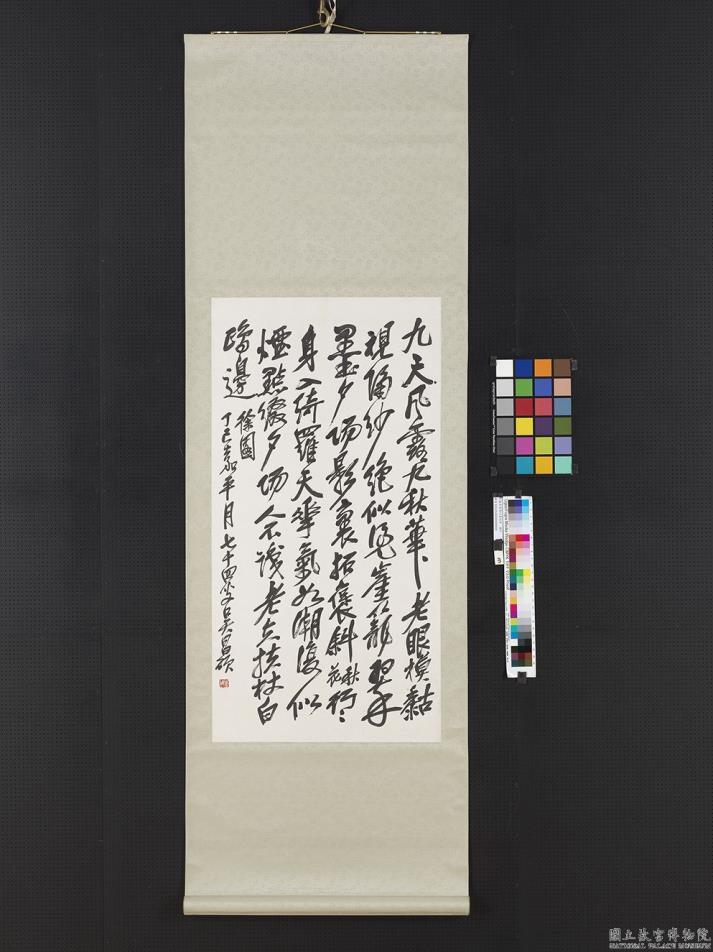 九天風露九秋華老眼模黏
視隔紗絕似憑崖籠翠
墨夕陽影裏拓袈斜秋花行行
身入綺羅天華氣如潮復似
煙點綴夕陽人不淺老去扶杖白
鷗邊徐園
丁巳嘉平月七十四叟吳昌碩
國立故宮博物院
NATIONAL PALACE MUSEUM